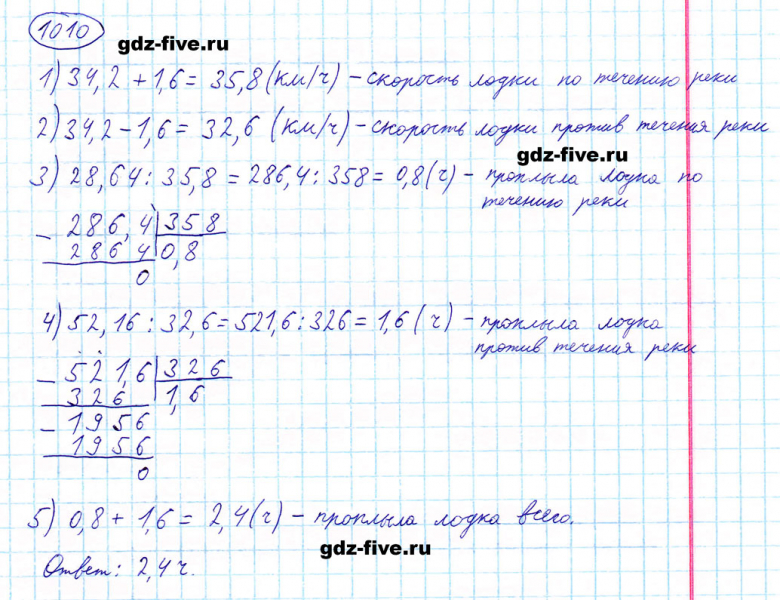 1010
gdz-five.ru
1) 34,2 + 1,6 = 35,8 (км/ч) – скорость лодки по течению реки
2) 34,2 – 1,6 = 32,6 (км/ч) – скорость лодки против течения реки
gdz-five.ru
3) 28,64 : 35,8 = 286,4 : 358 = 0,8 (ч) – проплыла лодка по
течению реки
– 286,4 | 358
286 4 | 0,8
0
4) 52,16 : 32,6 = 521,6 : 326 = 1,6 (ч) – проплыла лодка
против течения реки
– 521,6 | 326
326 | 1,6
– 1956
1956
0
5) 0,8 + 1,6 = 2,4 (ч) – проплыла лодка всего.
gdz-five.ru
Ответ: 2,4 ч.